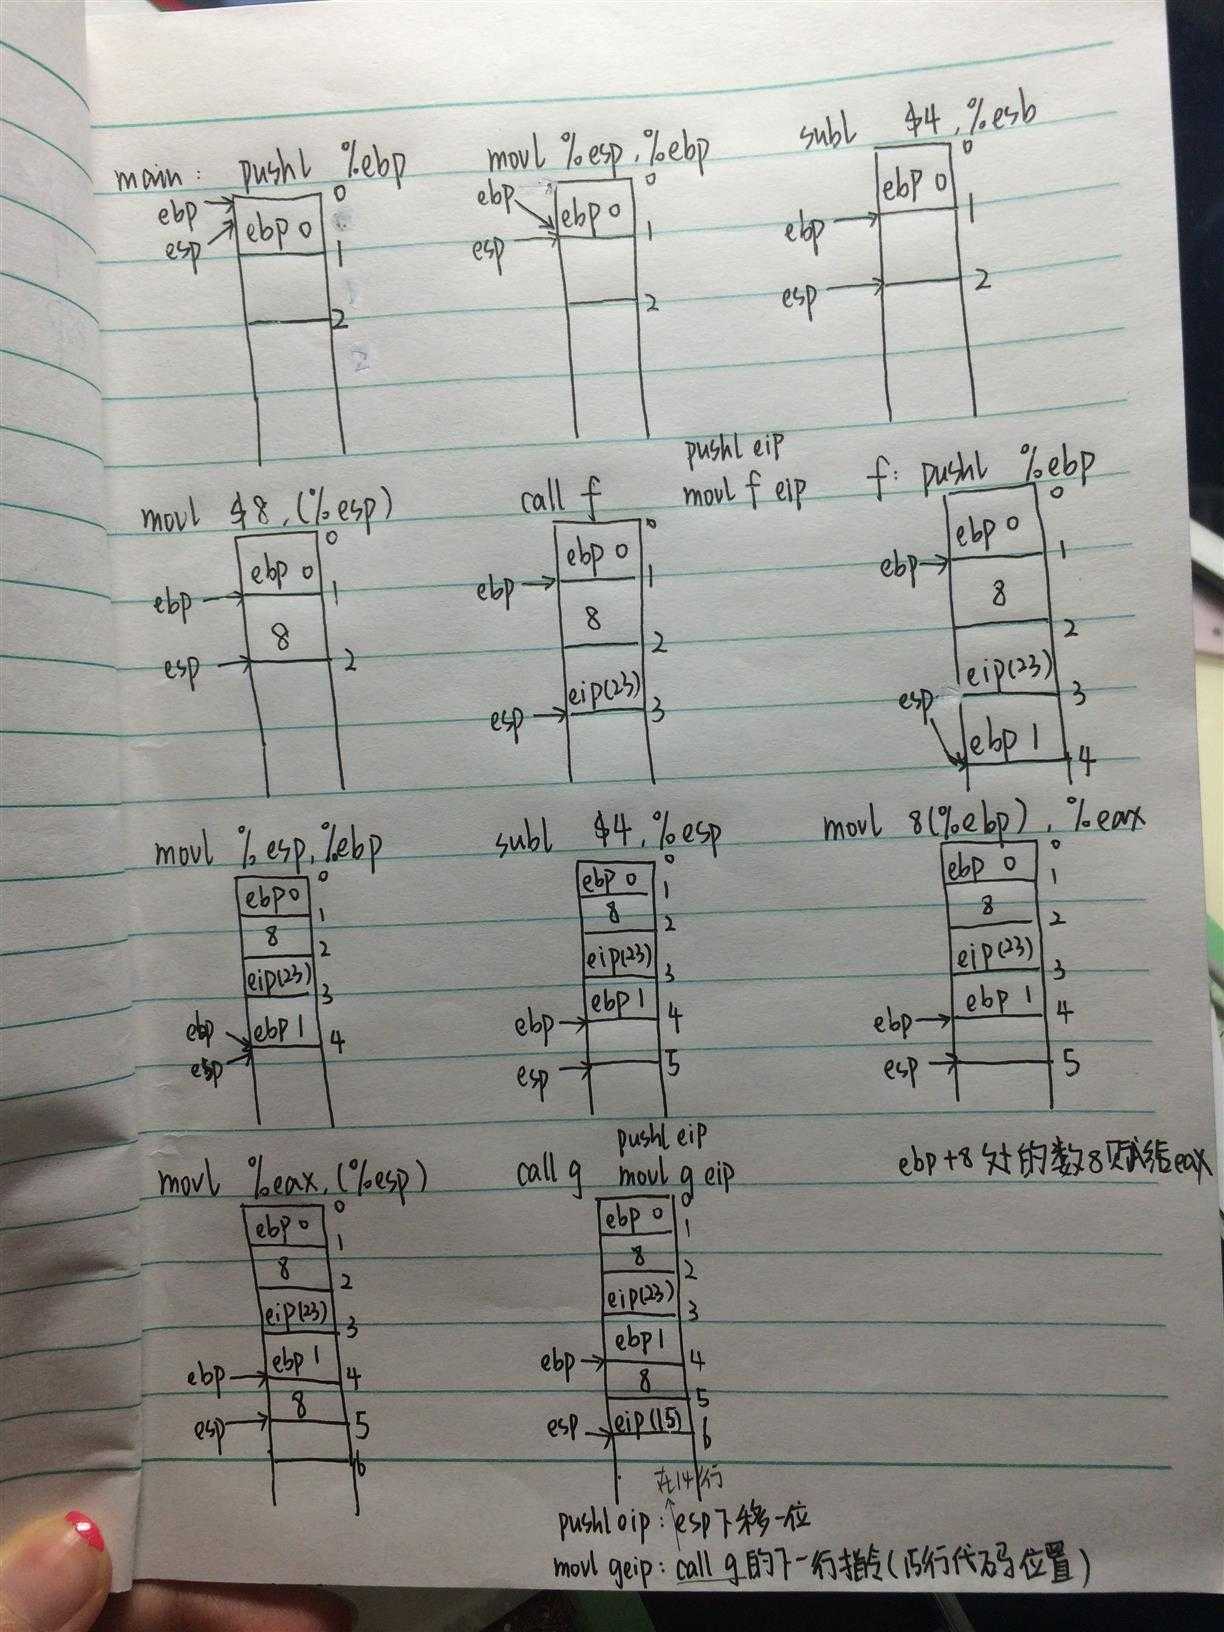 main: pushl %ebp
ebp
esp
ebp 0
0
1
2
movl %esp, %ebp
ebp
esp
ebp 0
0
1
2
subl $4, %esb
ebp
esp
ebp 0
0
1
2
movl $8, (%esp)
ebp
esp
ebp 0
8
0
1
2
call f
pushl eip
movl f eip
ebp
esp
ebp 0
8
eip(23)
0
1
2
3
f: pushl %ebp
ebp
esp
ebp 0
8
eip(23)
ebp 1
0
1
2
3
4
movl %esp, %ebp
ebp
esp
ebp 0
8
eip(23)
ebp 1
0
1
2
3
4
subl $4, %esp
ebp
esp
ebp 0
8
eip(23)
ebp 1
0
1
2
3
4
5
movl 8(%ebp), %eax
ebp
esp
ebp 0
8
eip(23)
ebp 1
0
1
2
3
4
5
ebp+8处的数8赋给eax
movl %eax, (%esp)
ebp
esp
ebp 0
8
eip(23)
ebp 1
8
0
1
2
3
4
5
6
pushl eip
call g movl g eip
ebp
esp
ebp 0
8
eip(23)
ebp 1
8
eip(15)
0
1
2
3
4
5
6
在14行
pushl eip: esp下移一位
movl g eip: call g的下一行指令(15行代码位置)